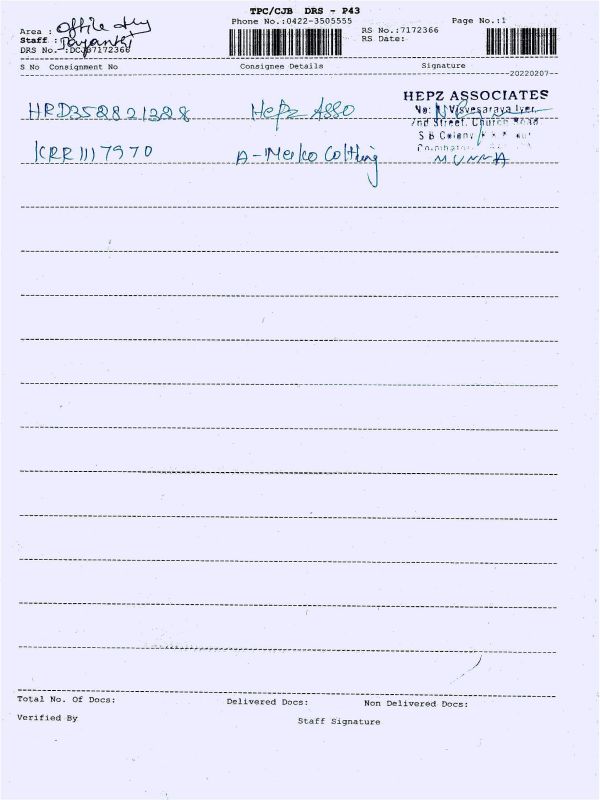 TPC/CJB DRS - P43
Phone No.:0422-3505555 Page No.:1
Area : Office
RS No.:7172366
Staff :
RS Date:
DRS No. :DCJB7172366
S No Consignment No Consignee Details Signature
20220207
HEPZ ASSOCIATES
HRD358821328 Hepz Asso
Visvesaraya Iyer
2nd Street, Church Road
S B Colony
KRR1117970 A-
MUNNA
Total No. Of Docs: Delivered Docs: Non Delivered Docs:
Verified By Staff Signature